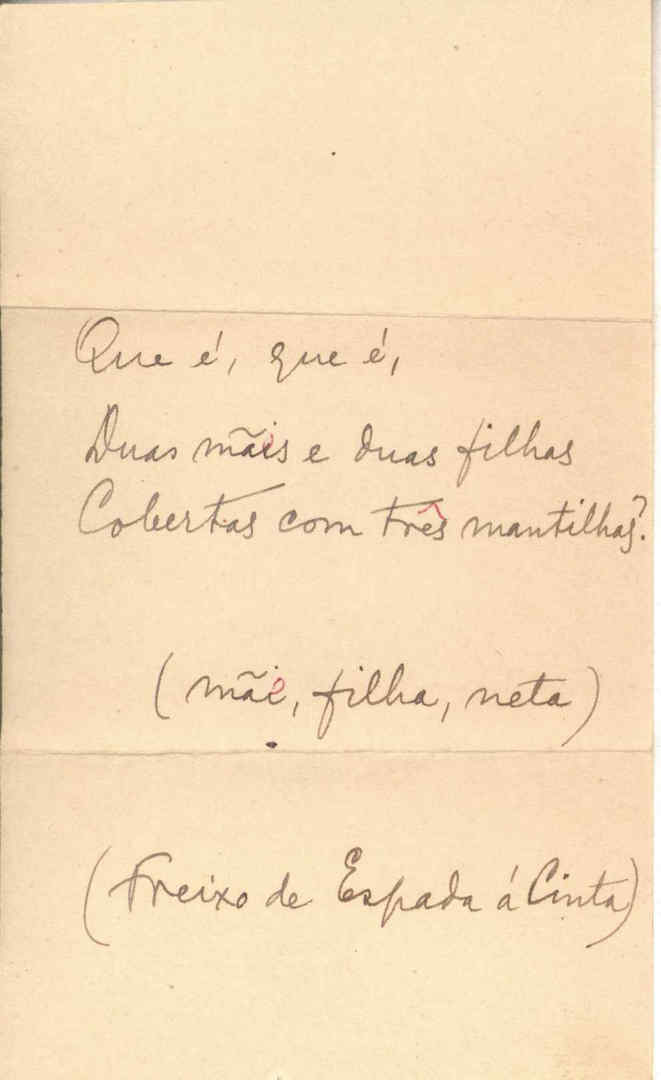 Que é, que é,
Duas mães e duas filhas
Cobertas com três mantilhas?
(mãe, filha, neta)
(Freixo de Espada á Cinta)